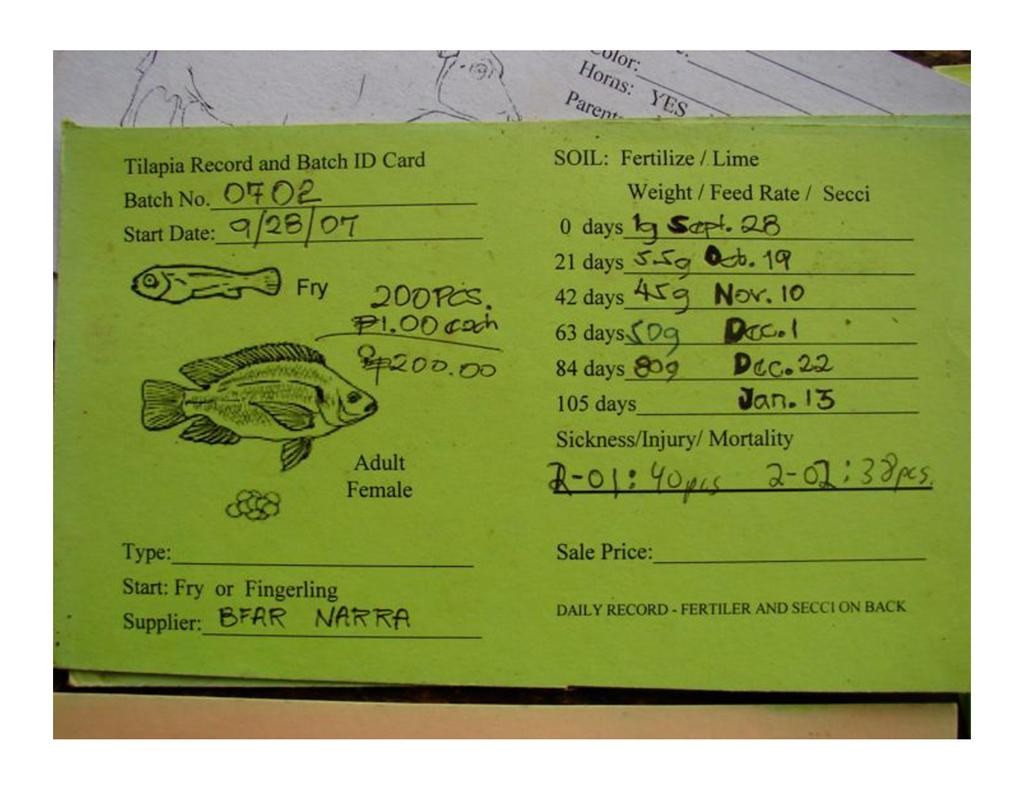 Color:
Horns: YES
Tilapia Record and Batch ID Card
Batch No. 0702
Start Date: 9/28/07
Fry
200PCS.
₱1.00 each
₱200.00
Adult
Female
Type:
Start: Fry or Fingerling
Supplier: BFAR NARRA
SOIL: Fertilize / Lime
Weight / Feed Rate / Secci
0 days 1g Sept. 28
21 days 5.5g Oct. 19
42 days 45g Nov. 10
63 days 50g Dec. 1
84 days 80g Dec. 22
105 days Jan. 13
Sickness/Injury/ Mortality
2-01: 40pcs 2-02: 38pcs.
Sale Price:
DAILY RECORD - FERTILER AND SECCI ON BACK